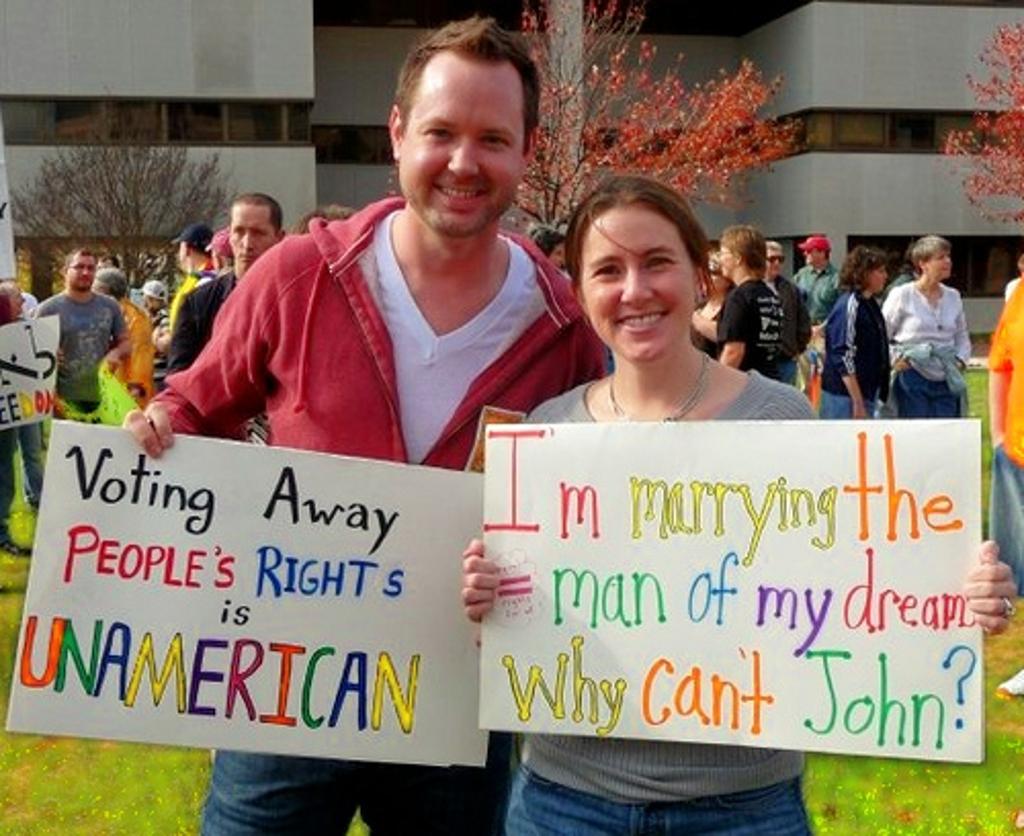 Voting Away
PEOPLE'S RIGHTS
is
UNAMERICAN
I'm marrying the
man of my dreams
Why can't John?